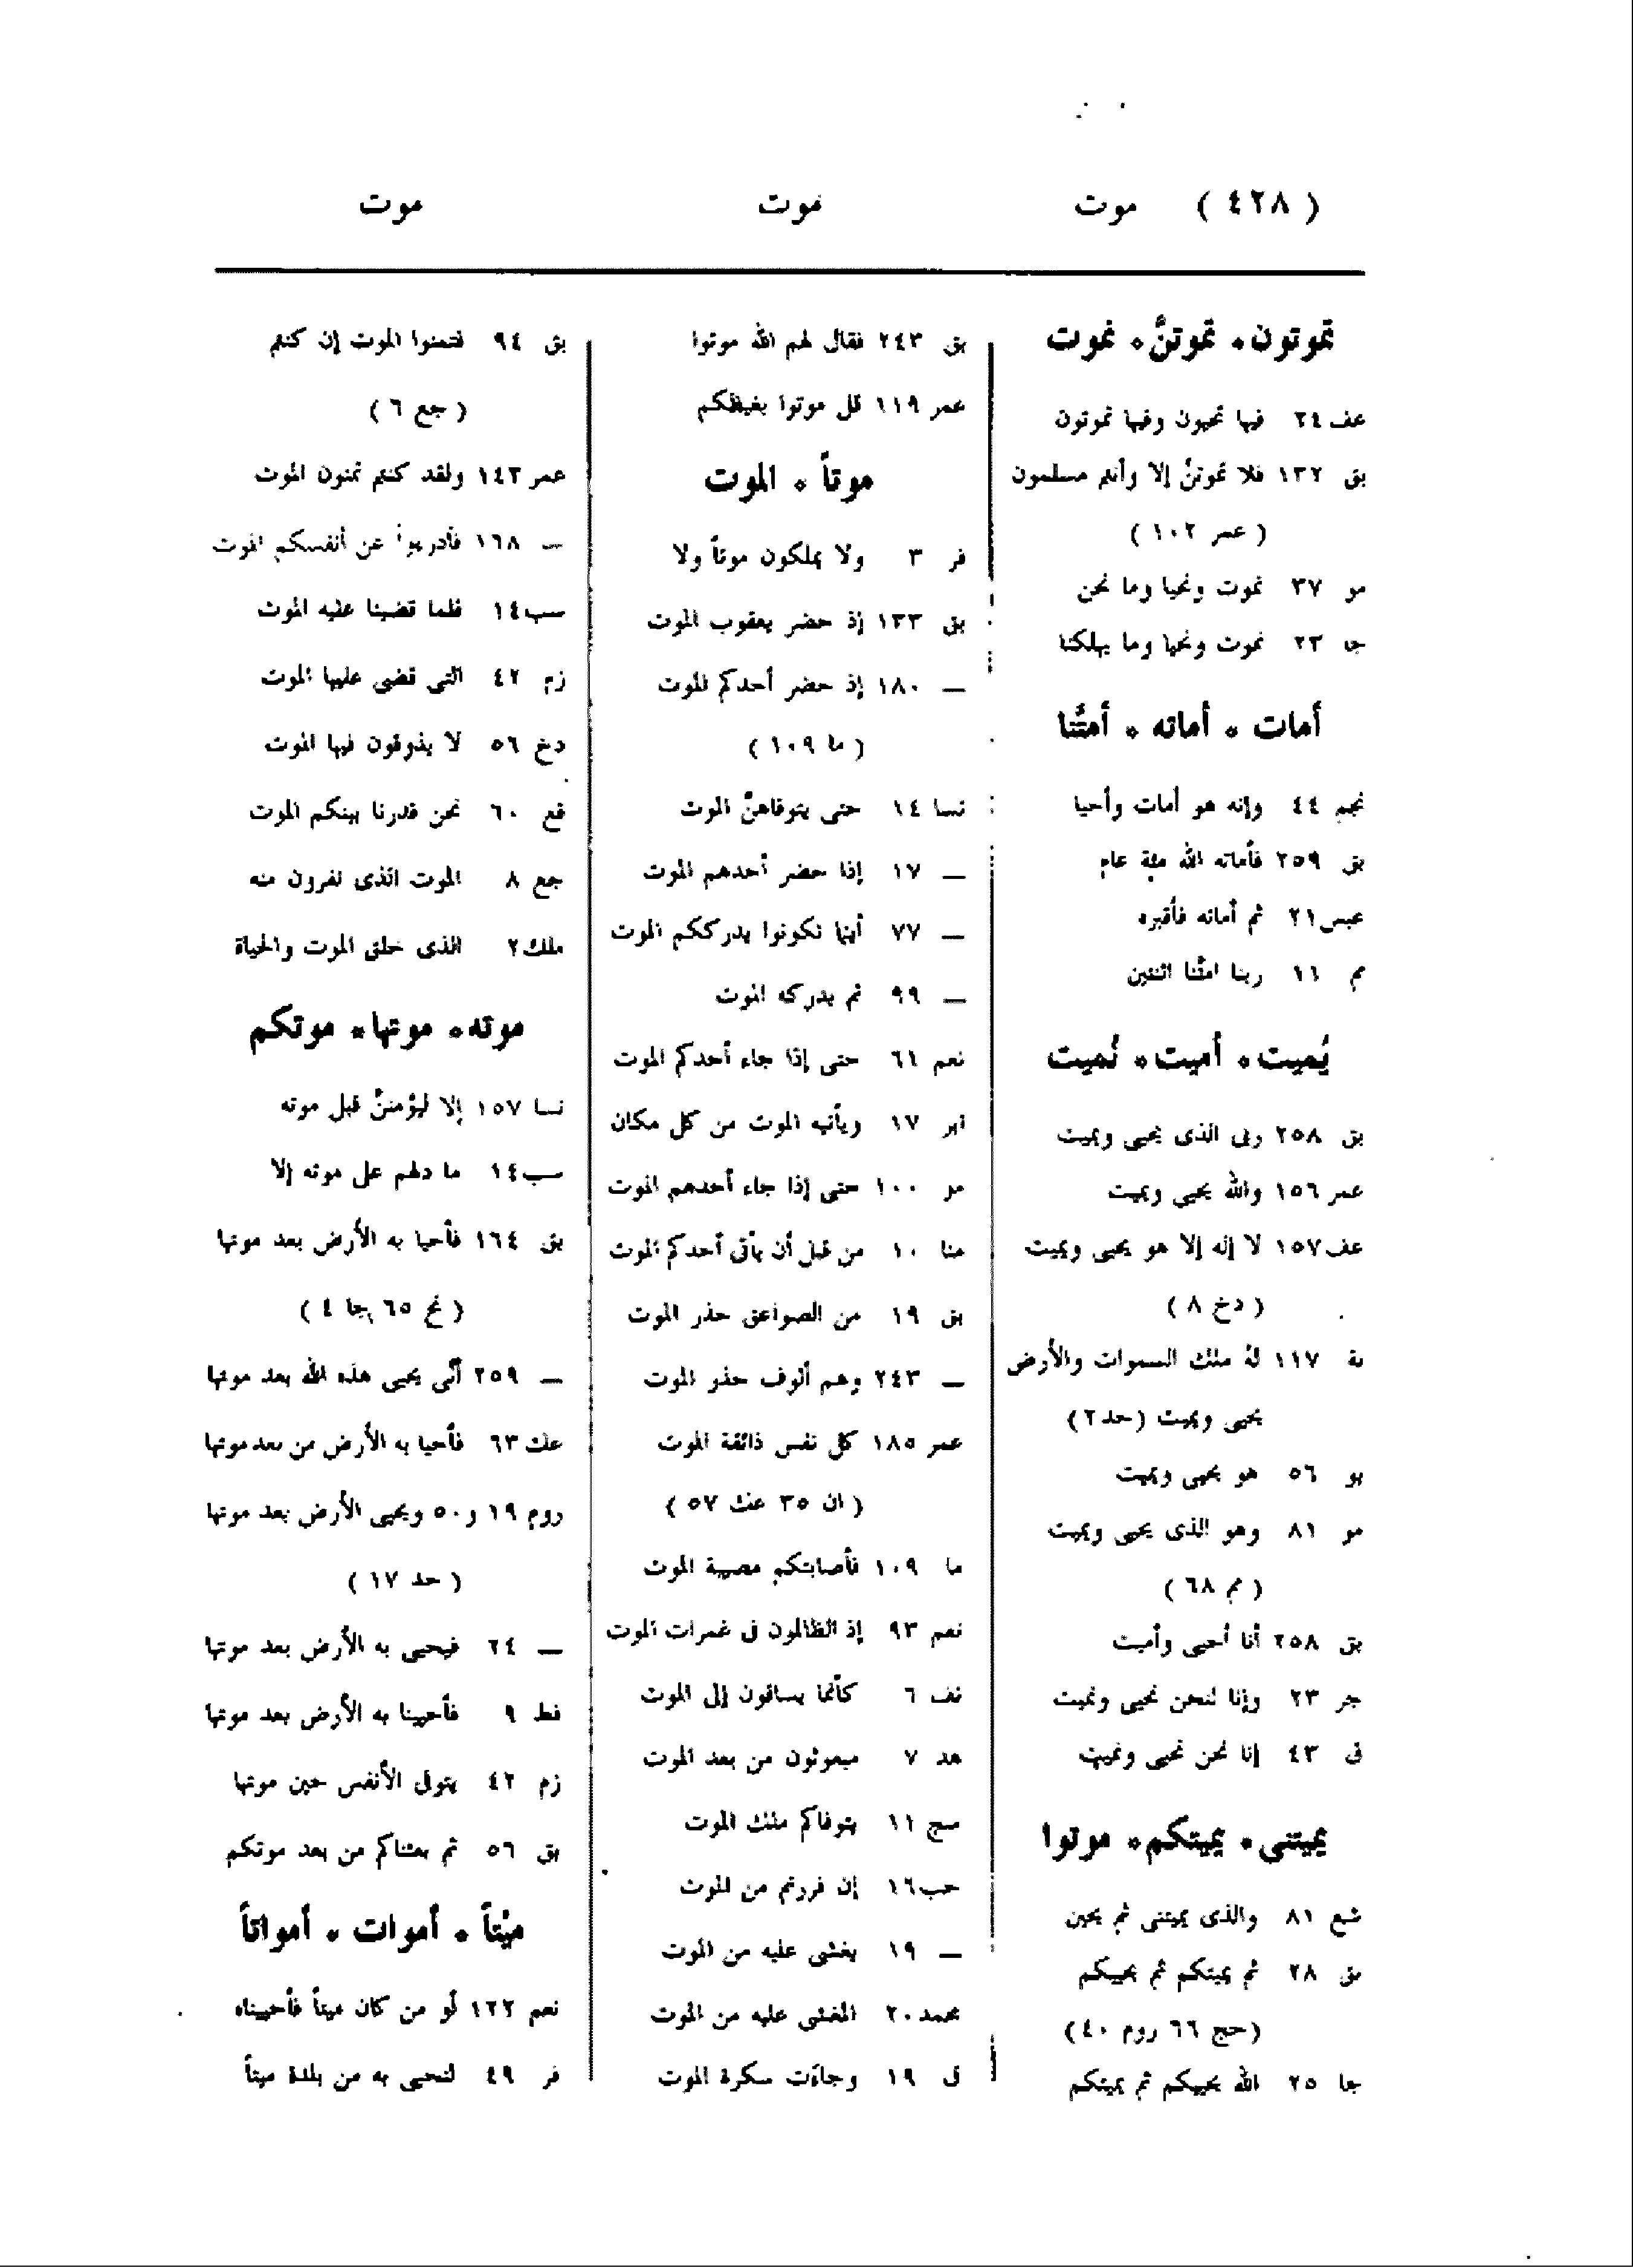 ( ٤٢٨ ) موت موت موت
تموتون ، تموتنَّ ، نموت
عف ٢٤ فيها تحيون وفيها تموتون
بق ١٣٢ فلا تموتنّ إلا وأنتم مسلمون
( عمر ١٠٢ )
مو ٣٧ نموت ونحيا وما نحن
جا ٢٣ نموت ونحيا وما يهلكنا
أمات ، أماته ، أمتَّنا
نجم ٤٤ وإنه هو أمات وأحيا
بق ٢٥٩ فأماته الله مئة عام
عبس ٢١ ثم أماته فأقبره
مم ١١ ربنا امتّنا اثنتين
يُميت ، أميت ، نُميت
بق ٢٥٨ ربى الذى يحيى ويميت
عمر ١٥٦ والله يحيي ويميت
عف ١٥٧ لا إله إلا هو يحيى ويميت
( دخ ٨ )
تة ١١٧ له ملك السموات والأرض
يحيى ويميت ( حد ٢ )
يو ٥٦ هو يحيى ويميت
مو ٨١ وهو الذى يحيى ويميت
( مم ٦٨ )
بق ٢٥٨ أنا أحيى وأميت
جر ٢٣ وإنا لنحن نحيى ونميت
ق ٤٣ إنا نحن نحيى ونميت
يميتنى ، يميتكم ، موتوا
شع ٨١ والذى يميتنى ثم يحين
بق ٢٨ ثم يميتكم ثم يحييكم
( حج ٦٦ روم ٤٠ )
جا ٢٥ الله يحييكم ثم يميتكم
بق ٢٤٣ فقال لهم الله موتوا
عمر ١١٩ قل موتوا بغيظكم
موتاً ، الموت
فر ٣ ولا يملكون موتاً ولا
بق ١٣٣ إذ حضر يعقوب الموت
— ١٨٠ إذ حضر أحدكم الموت
( ما ١٠٩ )
نسا ١٤ حتى يتوفاهنّ الموت
— ١٧ إذا حضر أحدهم الموت
— ٧٧ أينما تكونوا يدرككم الموت
— ٩٩ ثم يدركه الموت
نعم ٦١ حتى إذا جاء أحدكم الموت
ابر ١٧ ويأتيه الموت من كل مكان
مو ١٠٠ حتى إذا جاء أحدهم الموت
منا ١٠ من قبل أن يأتى أحدكم الموت
بق ١٩ من الصواعق حذر الموت
— ٢٤٣ وهم ألوف حذر الموت
عمر ١٨٥ كل نفس ذائقة الموت
( ان ٣٥ عنك ٥٧ )
ما ١٠٩ فأصابتكم مصيبة الموت
نعم ٩٣ إذ الظالمون فى غمرات الموت
نف ٦ كأنما يساقون إلى الموت
هد ٧ مبعوثون من بعد الموت
سج ١١ يتوفاكم ملك الموت
حب ١٦ إن فررتم من الموت
— ١٩ يغشى عليه من الموت
محمد ٢٠ المغشى عليه من الموت
ق ١٩ وجاءت سكرة الموت
بق ٩٤ فتمنوا الموت إن كنتم
( جع ٦ )
عمر ١٤٣ ولقد كنتم تمنون الموت
— ١٦٨ فأدرءوا عن أنفسكم الموت
سب ١٤ فلما قضينا عليه الموت
زم ٤٢ التى قضى عليها الموت
دخ ٥٦ لا يذوقون فيها الموت
قع ٦٠ نحن قدرنا بينكم الموت
جع ٨ الموت الذى تفرون منه
ملك ٢ الذى خلق الموت والحياة
موته ، موتها ، موتكم
نسا ١٥٧ إلا ليؤمننّ قبل موته
سب ١٤ ما دلهم على موته إلا
بق ١٦٤ فأحيا به الأرض بعد موتها
( نح ٦٥ جا ٤ )
— ٢٥٩ أنّى يحيى هذه الله بعد موتها
عنك ٦٣ فأحيا به الأرض من بعد موتها
روم ١٩ و ٥٠ ويحيى الأرض بعد موتها
( حد ١٧ )
— ٢٤ فيحيى به الأرض بعد موتها
فط ٩ فأحيينا به الأرض بعد موتها
زم ٤٢ يتوفى الأنفس حين موتها
بق ٥٦ ثم بعثناكم من بعد موتكم
ميْتاً ، أموات ، أمواتاً
نعم ١٢٢ أو من كان ميتاً فأحييناه
فر ٤٩ لنحيى به من بلدة ميتاً